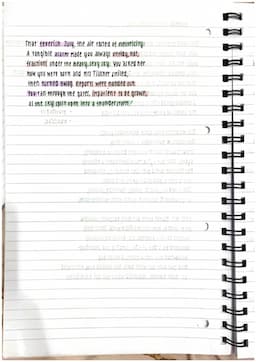 That feverish July, the air tasted of electricity.
A tangible alarm made you always untidy, hot,
fractious under the heavy, sexy sky. You asked her
how you were born and Mrs Tilscher smiled,
then turned away. Reports were handed out.
You ran through the gates, impatient to be grown,
as the sky split open into a thunderstorm.